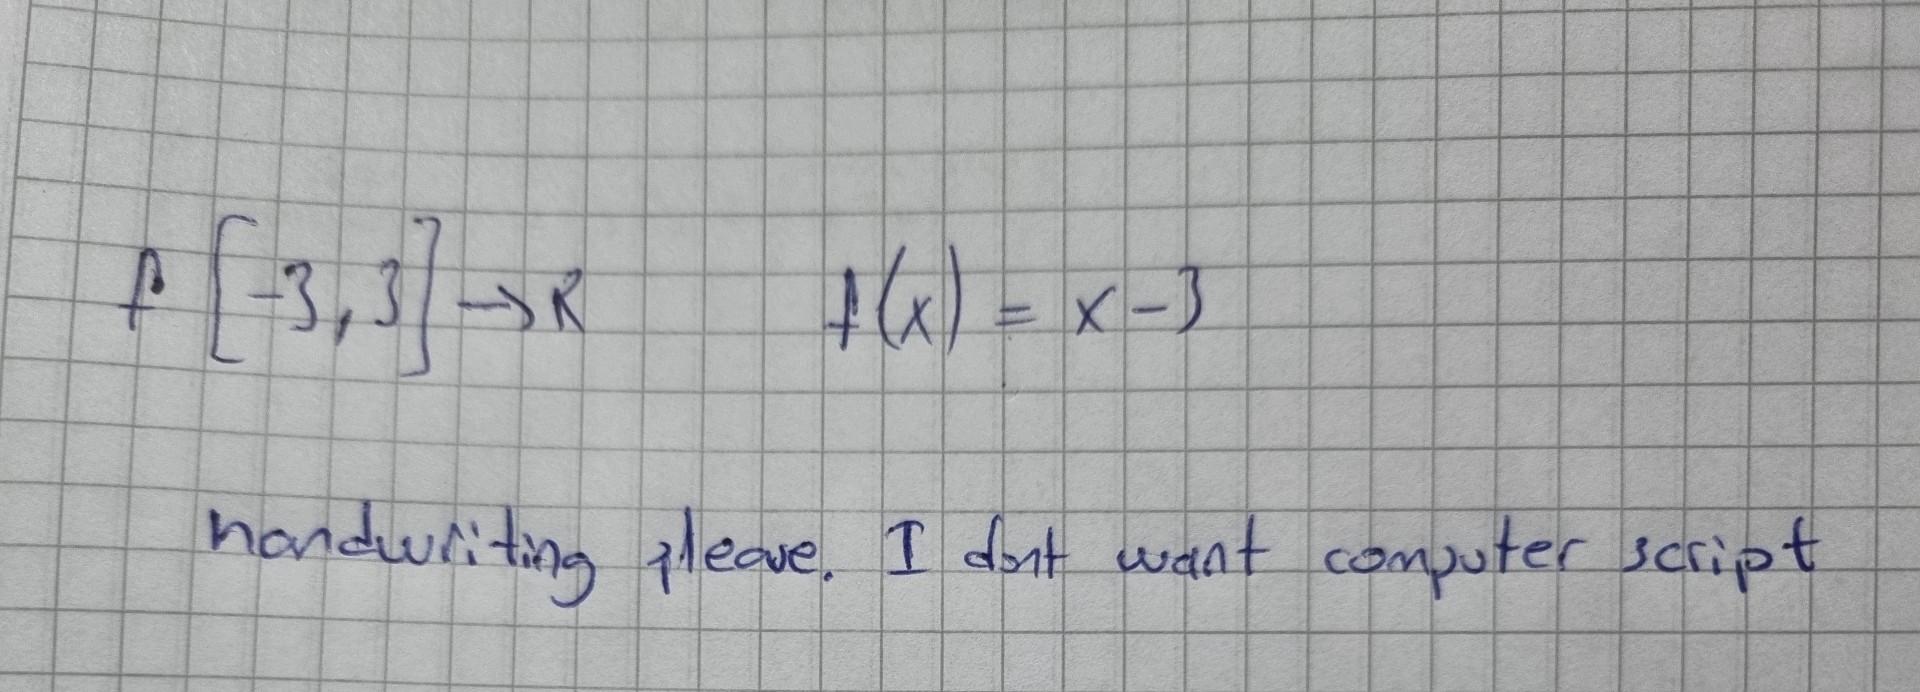 f [-3,3] → R f(x) = x-3
handwriting please. I dont want computer script